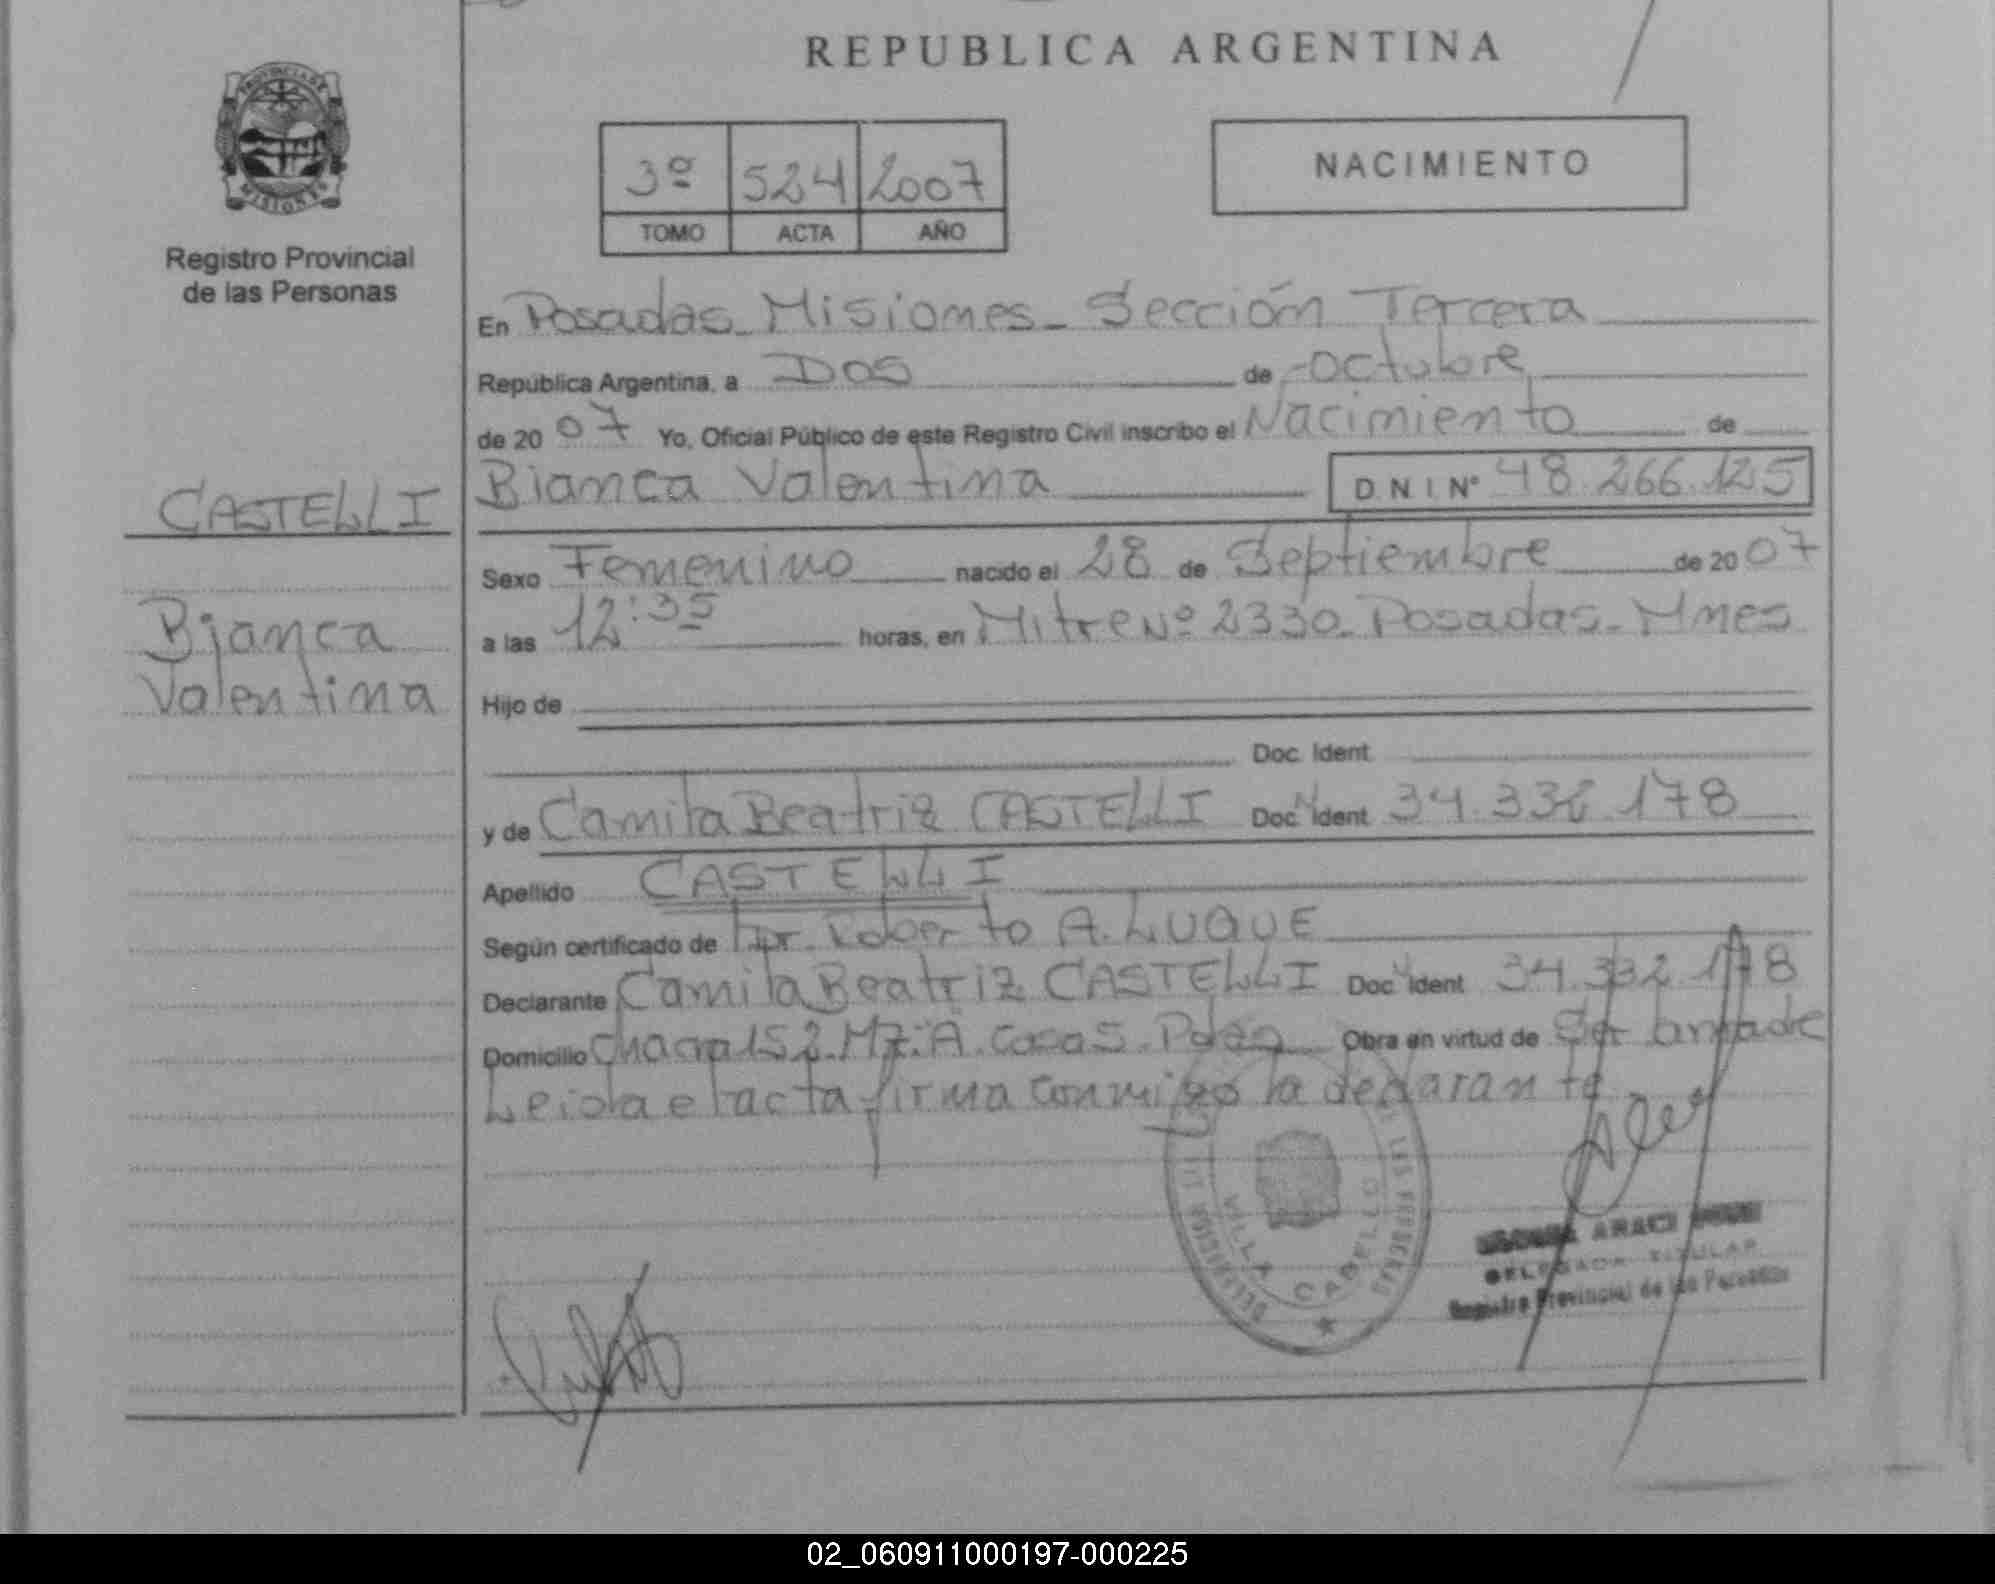 REPUBLICA ARGENTINA
PROVINCIA DE
MISIONES
Registro Provincial
de las Personas
3º 524 2007
TOMO ACTA AÑO
NACIMIENTO
En Posadas - Misiones - Sección Tercera
República Argentina, a Dos de Octubre
de 2007 Yo, Oficial Público de este Registro Civil inscribo el Nacimiento de
CASTELLI
Bianca Valentina D.N.I. Nº 48.266.125
Sexo Femenino nacido el 28 de Septiembre de 2007
Bianca
Valentina
a las 12:35 horas, en Mitre Nº 2330 - Posadas - Mnes
Hijo de
Doc. Ident.
y de Camila Beatriz CASTELLI Doc. Ident. 34.332.178
Apellido CASTELLI
Según certificado de Dr. Roberto A. LUQUE
Declarante Camila Beatriz CASTELLI Doc. Ident. 34.332.178
Domicilio Chacra 152. Mz. A. Casa 5. Pdas Obra en virtud de Ser la madre
Leida el acta firma conmigo la declarante
VILLA CABELLO
DE LAS PERSONAS
ARACI
DELEGADA TITULAR
Registro Provincial de las Personas
02_060911000197-000225